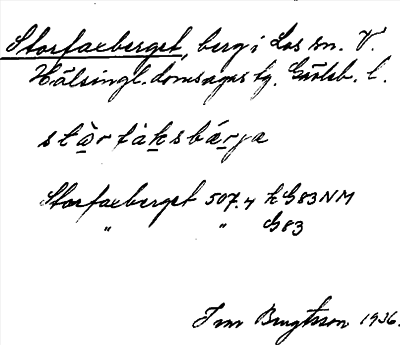 Storfaxberget, berg i Los sn. V.
Hälsingl. domsagas tg. Gävleb. l.
stòrfàksbárja
Storfaxberget 507.4 kG83NM
" " G83
Ivar Bengtsson 1936.